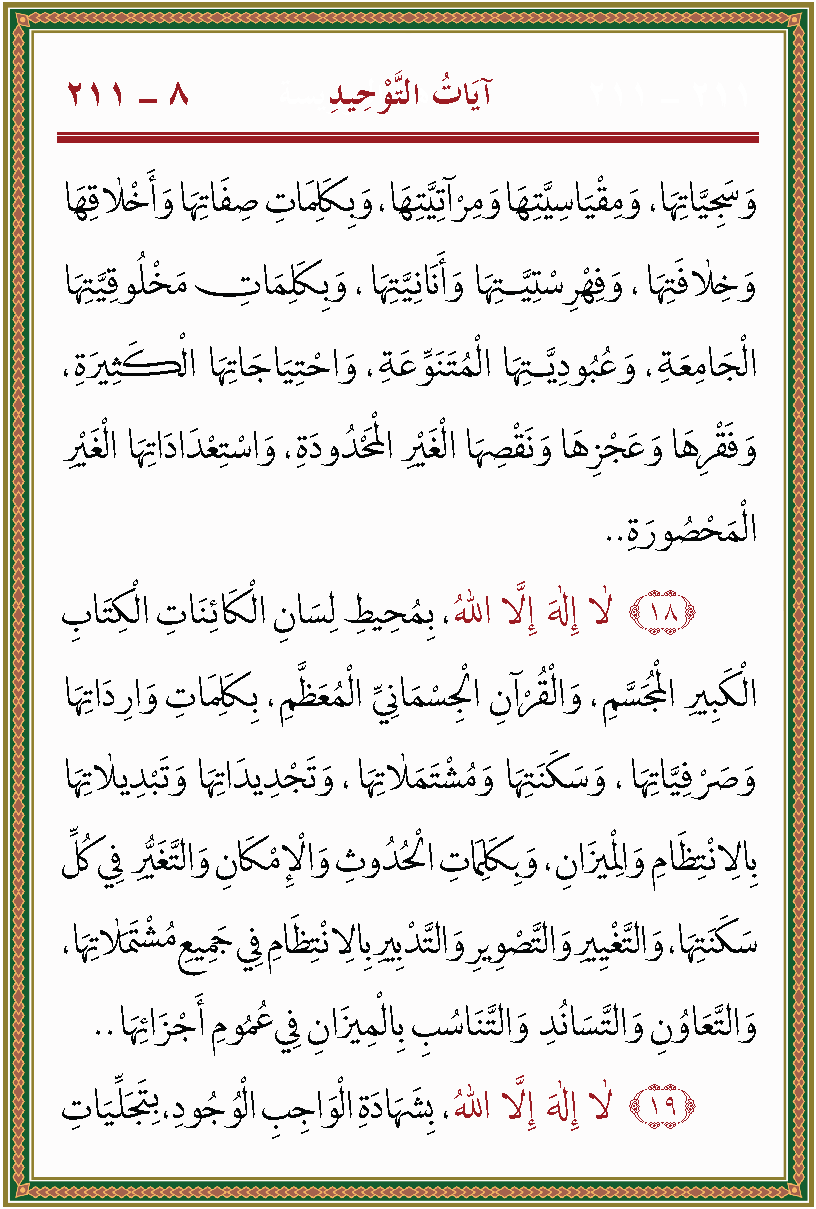 آيَاتُ التَّوْحِيدِ ٨ ـ ٢١١
وَسَجِيَّاتِهَا، وَمِقْيَاسِيَّتِهَا وَمِرْآتِيَّتِهَا، وَبِكَلِمَاتِ صِفَاتِهَا وَأَخْلَاقِهَا
وَخِلَافَتِهَا ، وَفِهْرِسْتِيَّتِهَا وَأَنَانِيَّتِهَا ، وَبِكَلِمَاتِ مَخْلُوقِيَّتِهَا
الْجَامِعَةِ ، وَعُبُودِيَّتِهَا الْمُتَنَوِّعَةِ ، وَاحْتِيَاجَاتِهَا الْكَثِيرَةِ ،
وَفَقْرِهَا وَعَجْزِهَا وَنَقْصِهَا الْغَيْرِ الْمَحْدُودَةِ، وَاسْتِعْدَادَاتِهَا الْغَيْرِ
الْمَحْصُورَةِ..
﴿١٨﴾ لَا إِلٰهَ إِلَّا اللهُ ، بِمُحِيطِ لِسَانِ الْكَائِنَاتِ الْكِتَابِ
الْكَبِيرِ الْمُجَسَّمِ ، وَالْقُرْآنِ الْجِسْمَانِيِّ الْمُعَظَّمِ ، بِكَلِمَاتِ وَارِدَاتِهَا
وَصَرْفِيَّاتِهَا ، وَسَكَنَتِهَا وَمُشْتَمَلَاتِهَا ، وَتَجْدِيدَاتِهَا وَتَبْدِيلَاتِهَا
بِالِانْتِظَامِ وَالْمِيزَانِ ، وَبِكَلِمَاتِ الْحُدُوثِ وَالْإِمْكَانِ وَالتَّغَيُّرِ فِي كُلِّ
سَكَنَتِهَا، وَالتَّغْيِيرِ وَالتَّصْوِيرِ وَالتَّدْبِيرِ بِالِانْتِظَامِ فِي جَمِيعِ مُشْتَمَلَاتِهَا ،
وَالتَّعَاوُنِ وَالتَّسَانُدِ وَالتَّنَاسُبِ بِالْمِيزَانِ فِي عُمُومِ أَجْزَائِهَا ..
﴿١٩﴾ لَا إِلٰهَ إِلَّا اللهُ ، بِشَهَادَةِ الْوَاجِبِ الْوُجُودِ، بِتَجَلِّيَاتِ